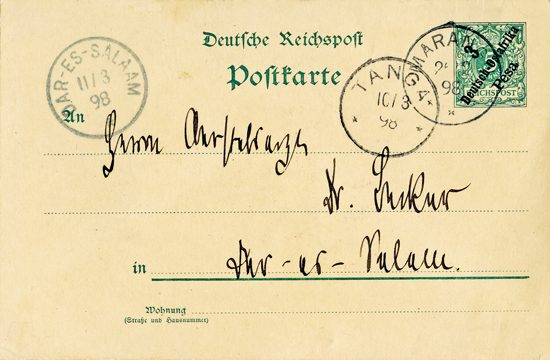 Deutsche Reichspost
Postkarte
DAR-ES-SALAAM
11/3
98
TANGA
10/3
98
MARAN
98
3
Deutsch-Ostafrika
Pesa
REICHSPOST
An
Herrn
Dr. Becker
in Dar-es-Salam.
Wohnung
(Straße und Hausnummer)